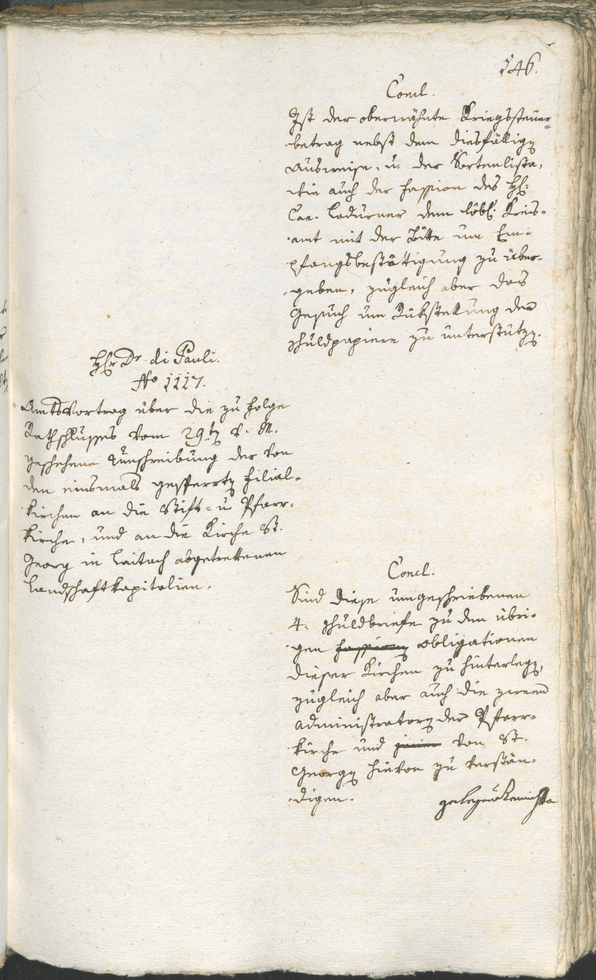 146.
Concl.
Ist der oberwähnte Kriegssteuer-
betrag nebst dem diesfällig
Ausweise, u. der Sortenlista,
wie auch der Fassion des H:
Ladurner dem löbl. Kreis-
amt mit der Bitte um Em-
pfangsbestättigung zu über-
geben, zugleich aber das
Gesuch um Rükstellung der
Schuldpapiere zu unterstütz.
H. Dr. di Pauli.
No 1117.
Amtsvortrag über die zu folge
Rathschlusses vom 29t v. M.
geschehene Umschreibung der von
den einsmals gesperrt Filial-
kirchen an die Stift- u Pfarr-
kirche, und an die Kirche St.
Georg in abgetrettenen
Landschaftkapitalien.
Concl.
Sind diese umgeschriebenen
4. Schuldbriefe zu den übri-
gen Obligationen
dieser Kirchen zu hinterleg,
zugleich aber auch die zween
Administrator der Pfarr-
kirche und von St.
Georg hievon zu verstän-
digen.